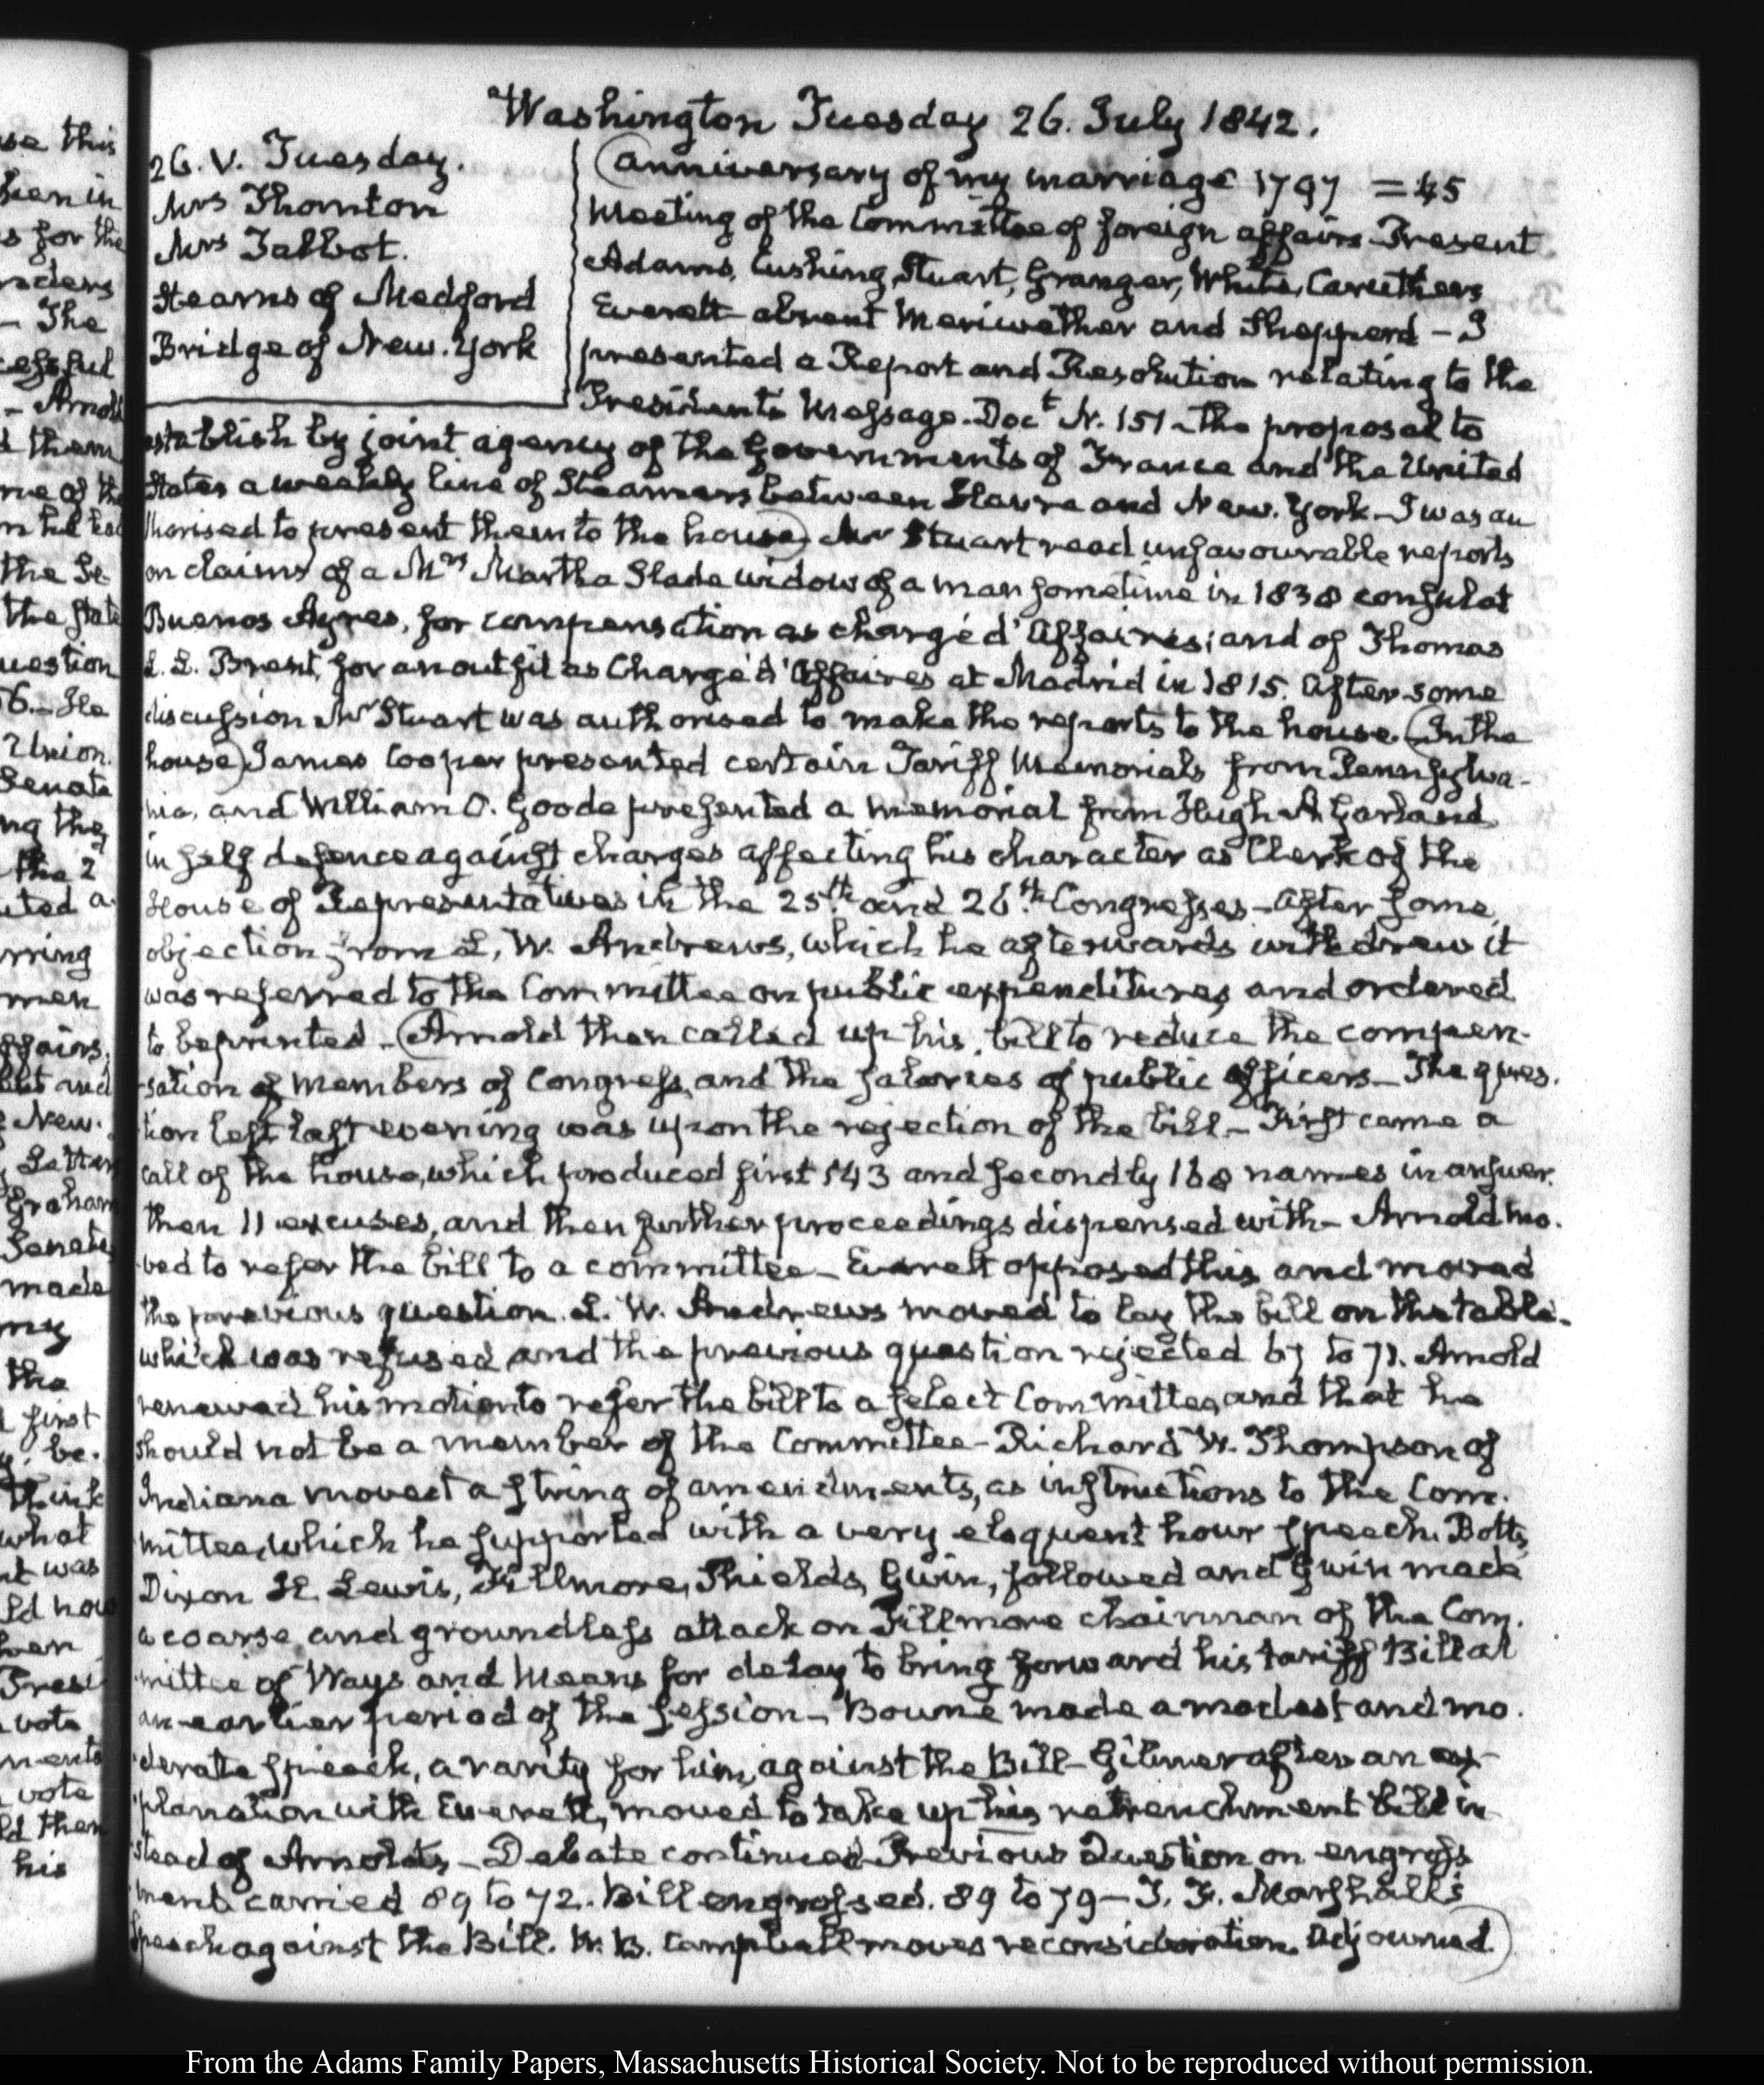 Washington Tuesday 26. July 1842.
26. V. Tuesday.
Mrs Thornton
Mrs Talbot.
Stearns of Medford
Bridge of New. York
(Anniversary of my marriage 1797 = 45
Meeting of the Committee of foreign affairs Present
Adams, Cushing, Stuart, Granger, White, Caruthers
Everett absent Meriwether and Shepperd – I
presented a Report and Resolution relating to the
Presidents Message. Doct N. 151 – the proposal to
establish by joint agency of the Governments of France and the United
States a weekly line of Steamers between Havre and New. York – I was au
thorised to present them to the house) Mr Stuart read unfavourable reports
on claims of a Mrs Martha Slade widow of a man sometime in 1838 consul at
Buenos Ayres, for compensation as chargé d'Affaires; and of Thomas
L. L. Brent, for an outfit as Chargé d'Affaires at Madrid in 1815. After some
discussion Mr Stuart was authorised to make the reports to the house. (In the
house) James Cooper presented certain Tariff Memorials from Pennsylva-
nia, and William O. Goode presented a memorial from Hugh A. Garland
in self defence against charges affecting his character as Clerk of the
House of Representatives in the 25th and 26th Congresses – After some
objection from L. W. Andrews, which he afterwards withdrew it
was referred to the Committee on public expenditures, and ordered
to be printed – (Arnold then called up his bill to reduce the compen-
sation of members of Congress, and the salaries of public officers – The ques.
tion left last evening was upon the rejection of the bill – First came a
call of the house, which produced first 143 and secondly 168 names in answer.
then 11 excuses, and then further proceedings dispensed with – Arnold mo.
ved to refer the bill to a committee – Everett opposed this and moved
the previous question. L. W. Andrews moved to lay the bill on the table.
which was refused and the previous question rejected 67 to 71. Arnold
renewed his motion to refer the bill to a select Committee, and that he
should not be a member of the Committee – Richard W. Thompson of
Indiana moved a string of amendments, as instructions to the Com.
mittee, which he supported with a very eloquent hour speech. Botts,
Dixon H. Lewis, Fillmore, Shields, Gwin, followed and Gwin made
a coarse and groundless attack on Fillmore chairman of the Com.
mittee of Ways and Means for delay to bring forward his tariff Bill at
an earlier period of the session – Bowne made a modest and mo.
derate speech, a rarity for him, against the Bill – Gilmer after an ex-
planation with Everett, moved to take up his retrenchment bill in
stead of Arnold's – Debate continued Previous Question on engross
ment carried 89 to 72. Bill engrossed. 89 to 79 – T. F. Marshall's
speech against the Bill. W. B. Campbell moves reconsideration. Adjourned.)
From the Adams Family Papers, Massachusetts Historical Society. Not to be reproduced without permission.